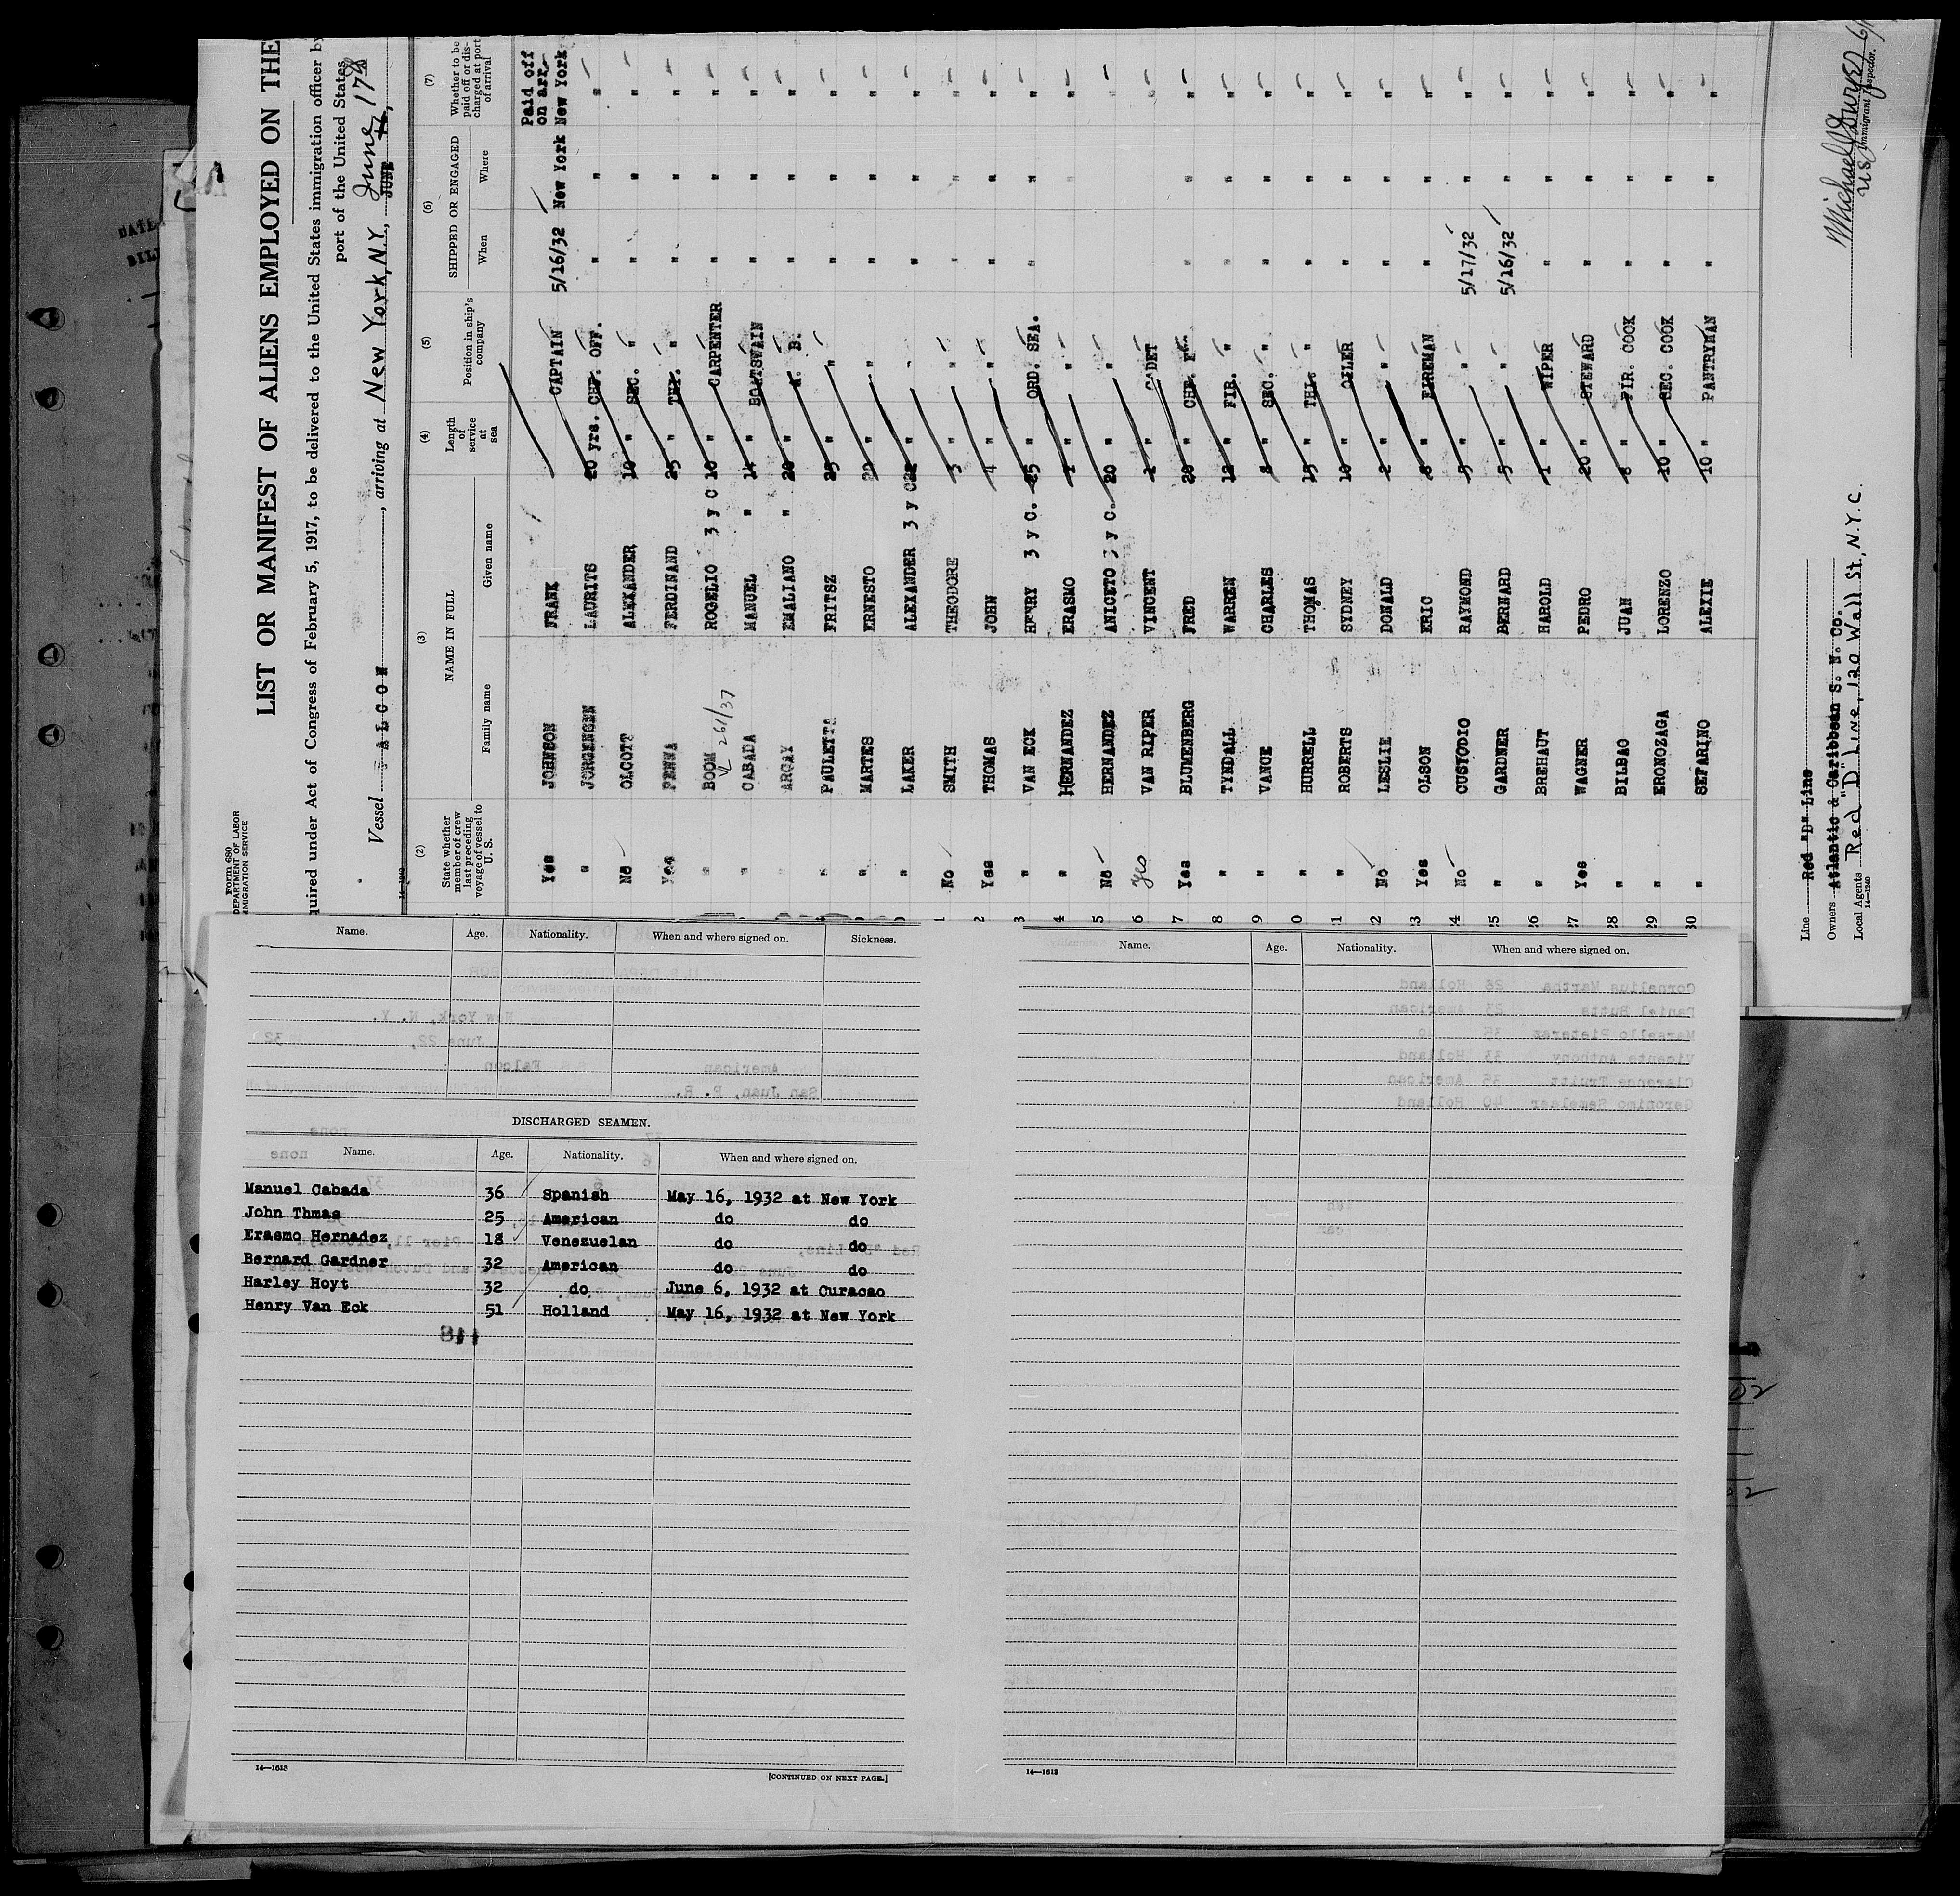 Form 680
DEPARTMENT OF LABOR
MMIGRATION SERVICE
LIST OR MANIFEST OF ALIENS EMPLOYED ON THE
quired under Act of Congress of February 5, 1917, to be delivered to the United States immigration officer by
port of the United States
Vessel FALCON, arriving at New York, N.Y., June 17th
JUNE
(2) (3) (4) (5) (6) (7)
State whether member of crew last preceding voyage of vessel to U. S.
NAME IN FULL
Family name Given name
Length of service at sea
Position in ship's company
SHIPPED OR ENGAGED
When Where
Whether to be paid off or discharged at port of arrival
Paid off
on arr
Yes JOHNSON FRANK CAPTAIN 5/16/32 New York New York
" JORGENSEN LAURITS 20 yrs. CHF. OFF. " " "
No OLCOTT ALEXANDER 10 " SEC. " " " "
Yes PENNA FERDINAND 25 " THI. " " " "
" BOOM ROGELIO 3 y C 10 " CARPENTER " " "
261/37
" CABADA MANUEL " 14 " BOATSWAIN " " "
" ARGAY EMALIANO " 20 " A. B. " " "
" PAULETTA FRITSZ 25 " " " " "
" MARTES ERNESTO 20 " " " " "
" LAKER ALEXANDER 3 y C 22 " " " " "
1 No SMITH THEODORE 3 " " " " "
2 Yes THOMAS JOHN 4 " " " " "
3 " VAN ECK HENRY 3 y C. 25 " ORD. SEA. " " "
4 " HERNANDEZ ERASMO 1 " " "
5 No HERNANDEZ ANICETO 3 y C. 20 " " "
6 Yes VAN RIPER VINCENT 1 " CADET "
7 Yes BLUMENBERG FRED 20 " CHF. " " "
8 " TYNDALL WARREN 12 " FIR. " " " "
9 " VANCE CHARLES 8 " SEC. " " " "
0 " HURRELL THOMAS 15 " THI. " " " "
21 " ROBERTS SYDNEY 10 " OILER " " "
22 No LESLIE DONALD 2 " " " " "
23 Yes OLSON ERIC 8 " FIREMAN " " "
24 No CUSTODIO RAYMOND 5 " " 5/17/32 " "
25 " GARDNER BERNARD 5 " " 5/16/32 " "
26 " BREHAUT HAROLD 1 " WIPER " " "
27 Yes WAGNER PEDRO 20 " STEWARD " " "
28 " BILBAO JUAN 8 " FIR. COOK " " "
29 " ERONOZAGA LORENZO 10 " SEC. COOK " " "
30 " SEFARINO ALEXIE 10 " PANTRYMAN " " "
Line Red "D" Line
Owners Atlantic & Caribbean S. N. Co.
Local Agents Red "D" Line, 120 Wall St., N.Y.C.
14-1240
U.S. Immigrant Inspector.
Name. Age. Nationality. When and where signed on. Sickness.
DISCHARGED SEAMEN.
Name. Age. Nationality. When and where signed on.
Manuel Cabada 36 Spanish May 16, 1932 at New York
John Thmas 25 American do do
Erasmo Hernadez 18 Venezuelan do do
Bernard Gardner 32 American do do
Harley Hoyt 32 do June 6, 1932 at Curacao
Henry Van Eck 51 Holland May 16, 1932 at New York
118
14—1613
[CONTINUED ON NEXT PAGE.]
Name. Age. Nationality. When and where signed on.
Cornelius Martha 26 Holland
Daniel Butts 23 American
Marsello Pieteraz 35 do
Vicente Anthony 33 Holland
Clarence Truitt 35 American
Geronimo Semeleer 40 Holland
14—1613